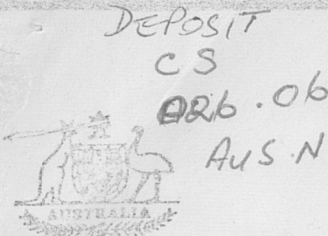 DEPOSIT
CS
026.06
AUS.N
AUSTRALIA